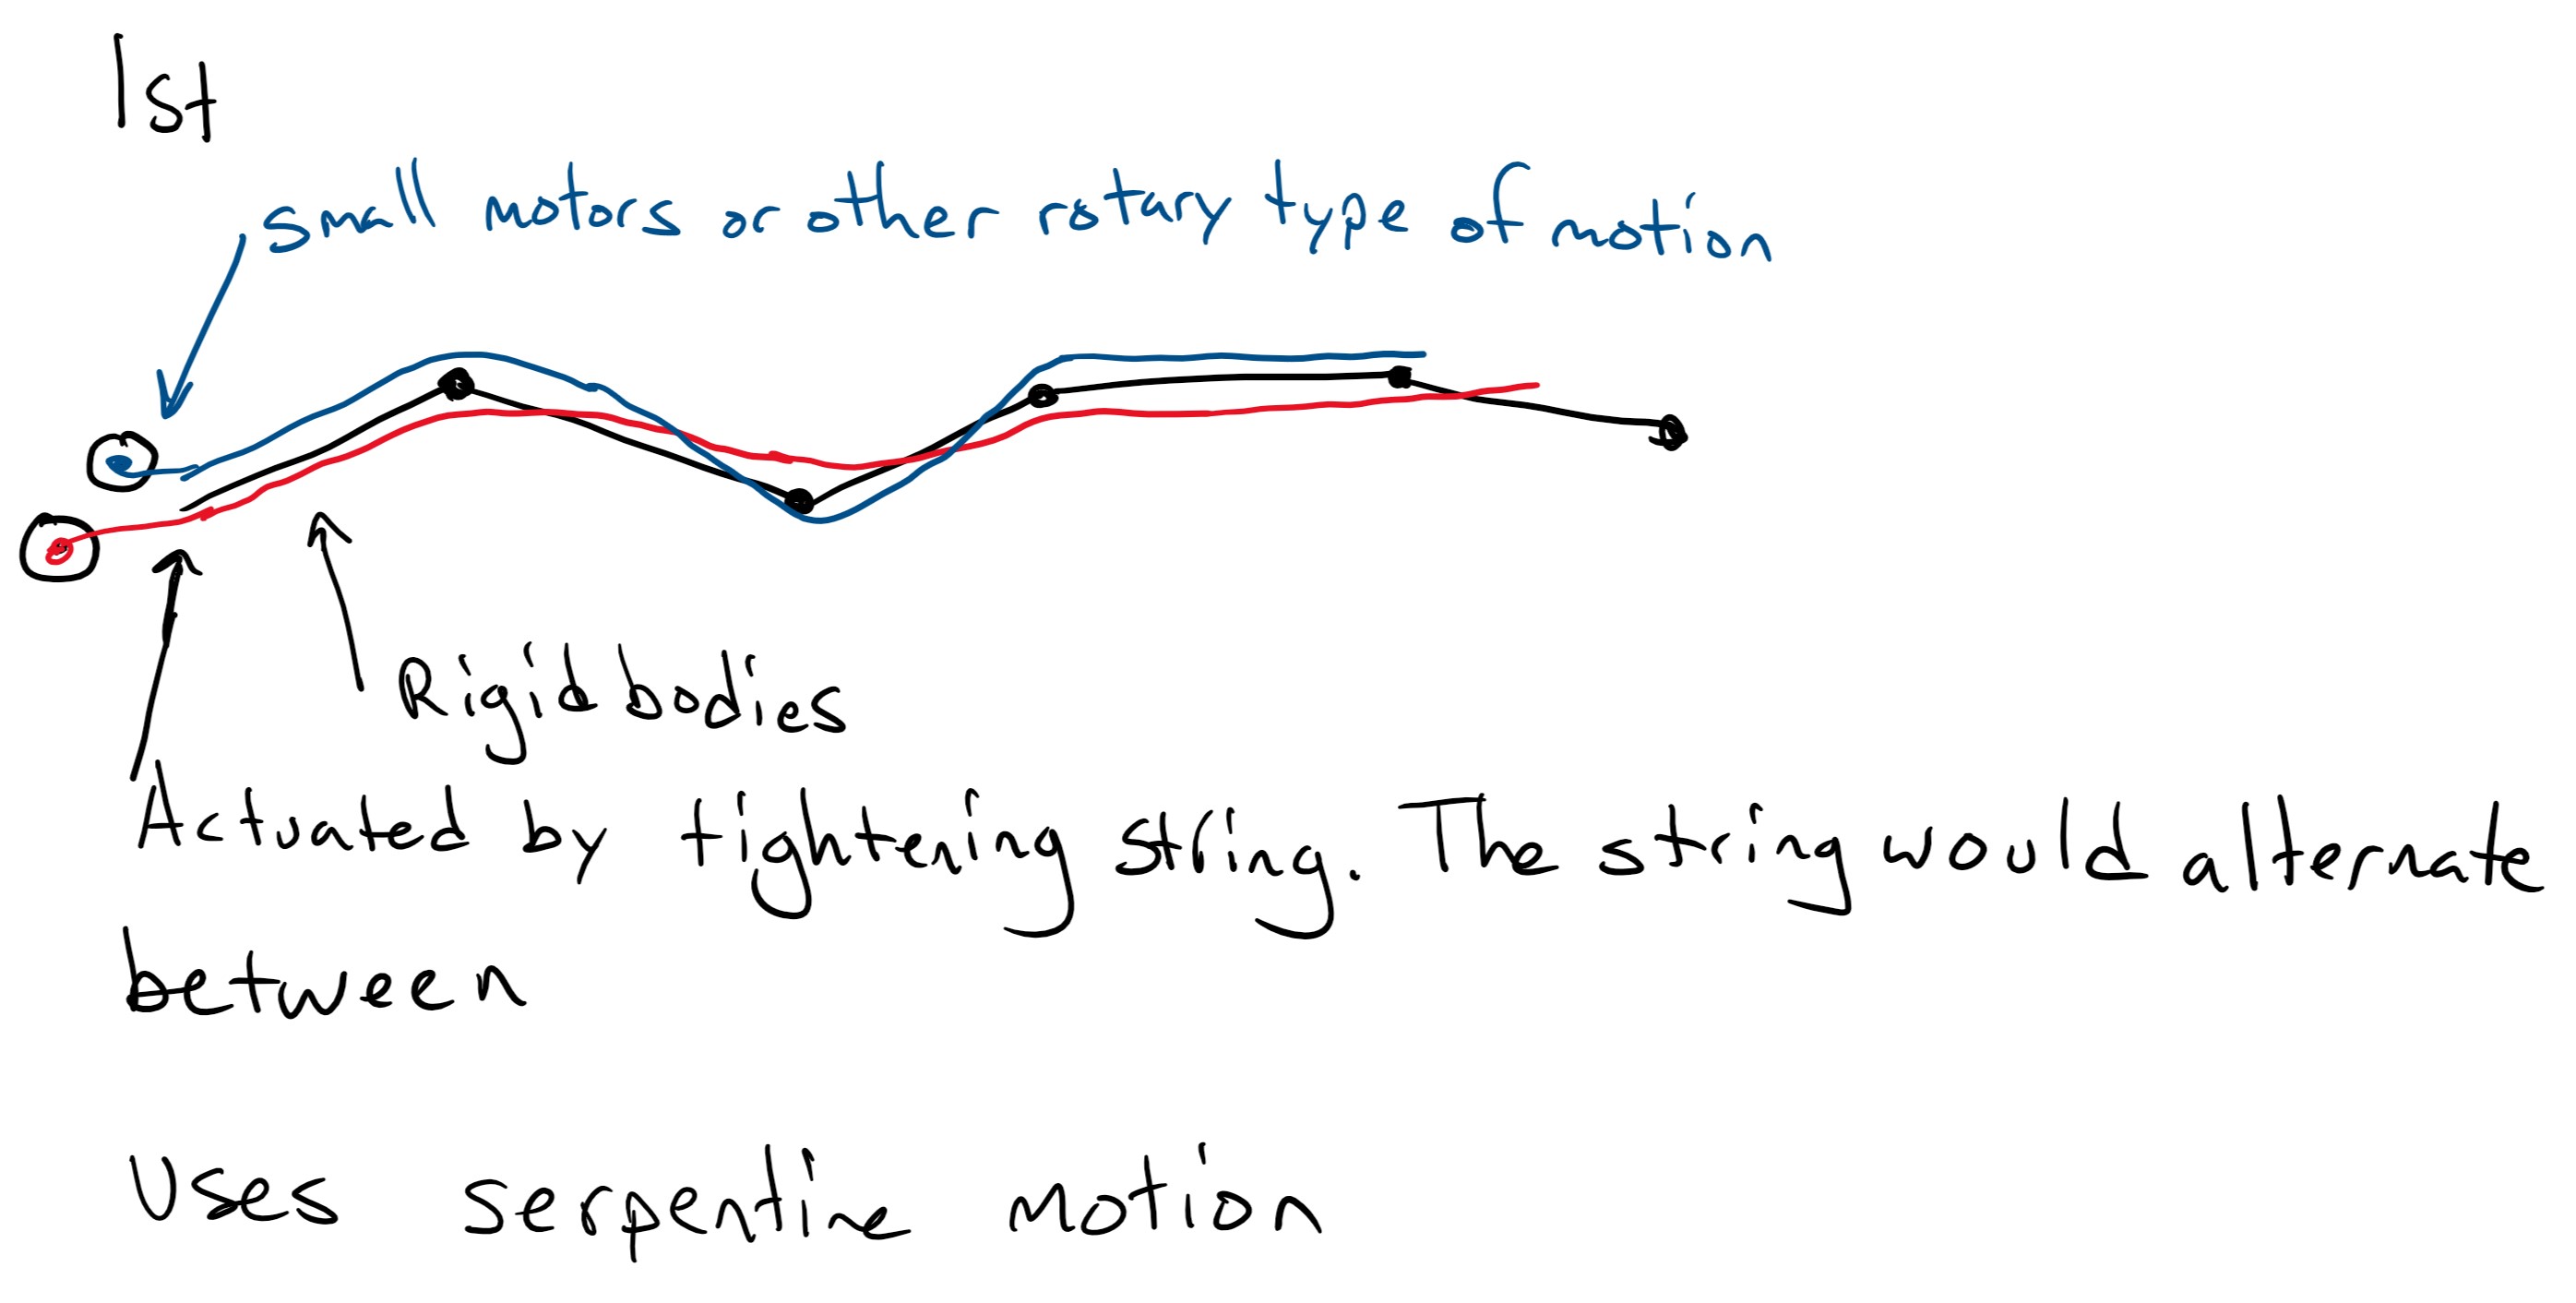 1st
small motors or other rotary type of motion
Rigid bodies
Actuated by tightening string. The string would alternate
between
Uses serpentine motion